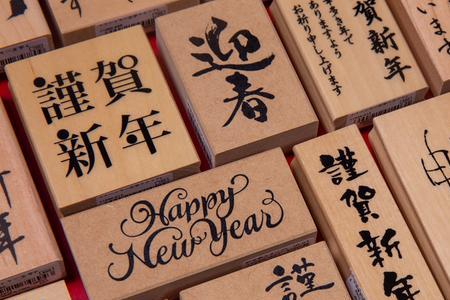 謹賀
新年
迎春
賀新年
き年で
ありますよう
お祈り申し上げます
います
Happy
New Year
謹賀新年
謹
年